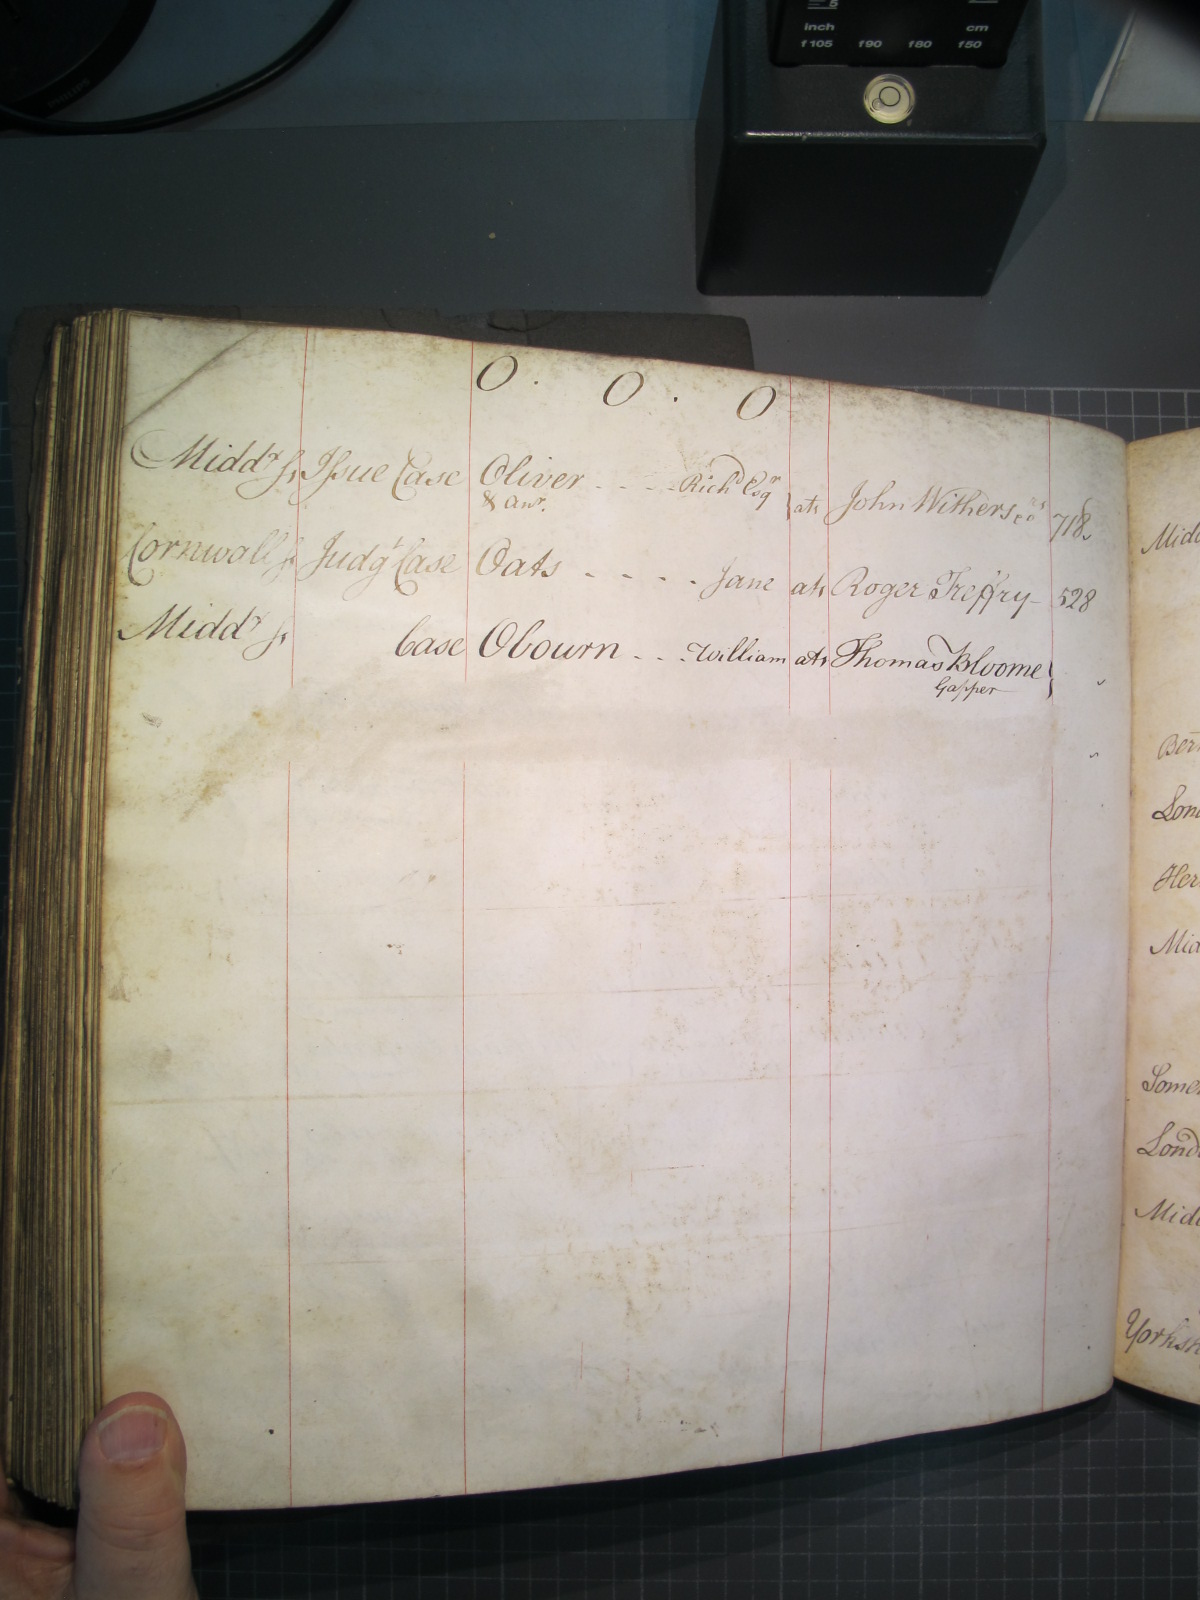 5
inch cm
f105 f90 f80 f50
PHILIPS
O . O . O
Middx ss Issue Case Oliver - - - - Richd Esqr } ats John Withers esqr 718
& anr.
Cornwall ss Judgt Case Oats - - - - Jane ats Roger Treffry - 528
Middx ss Case Obourn - - - William ats Thomas Bloome }
Gapper
Midd
Ber
Lon
Her
Mid
Somer
Lond
Midd
Yorksh